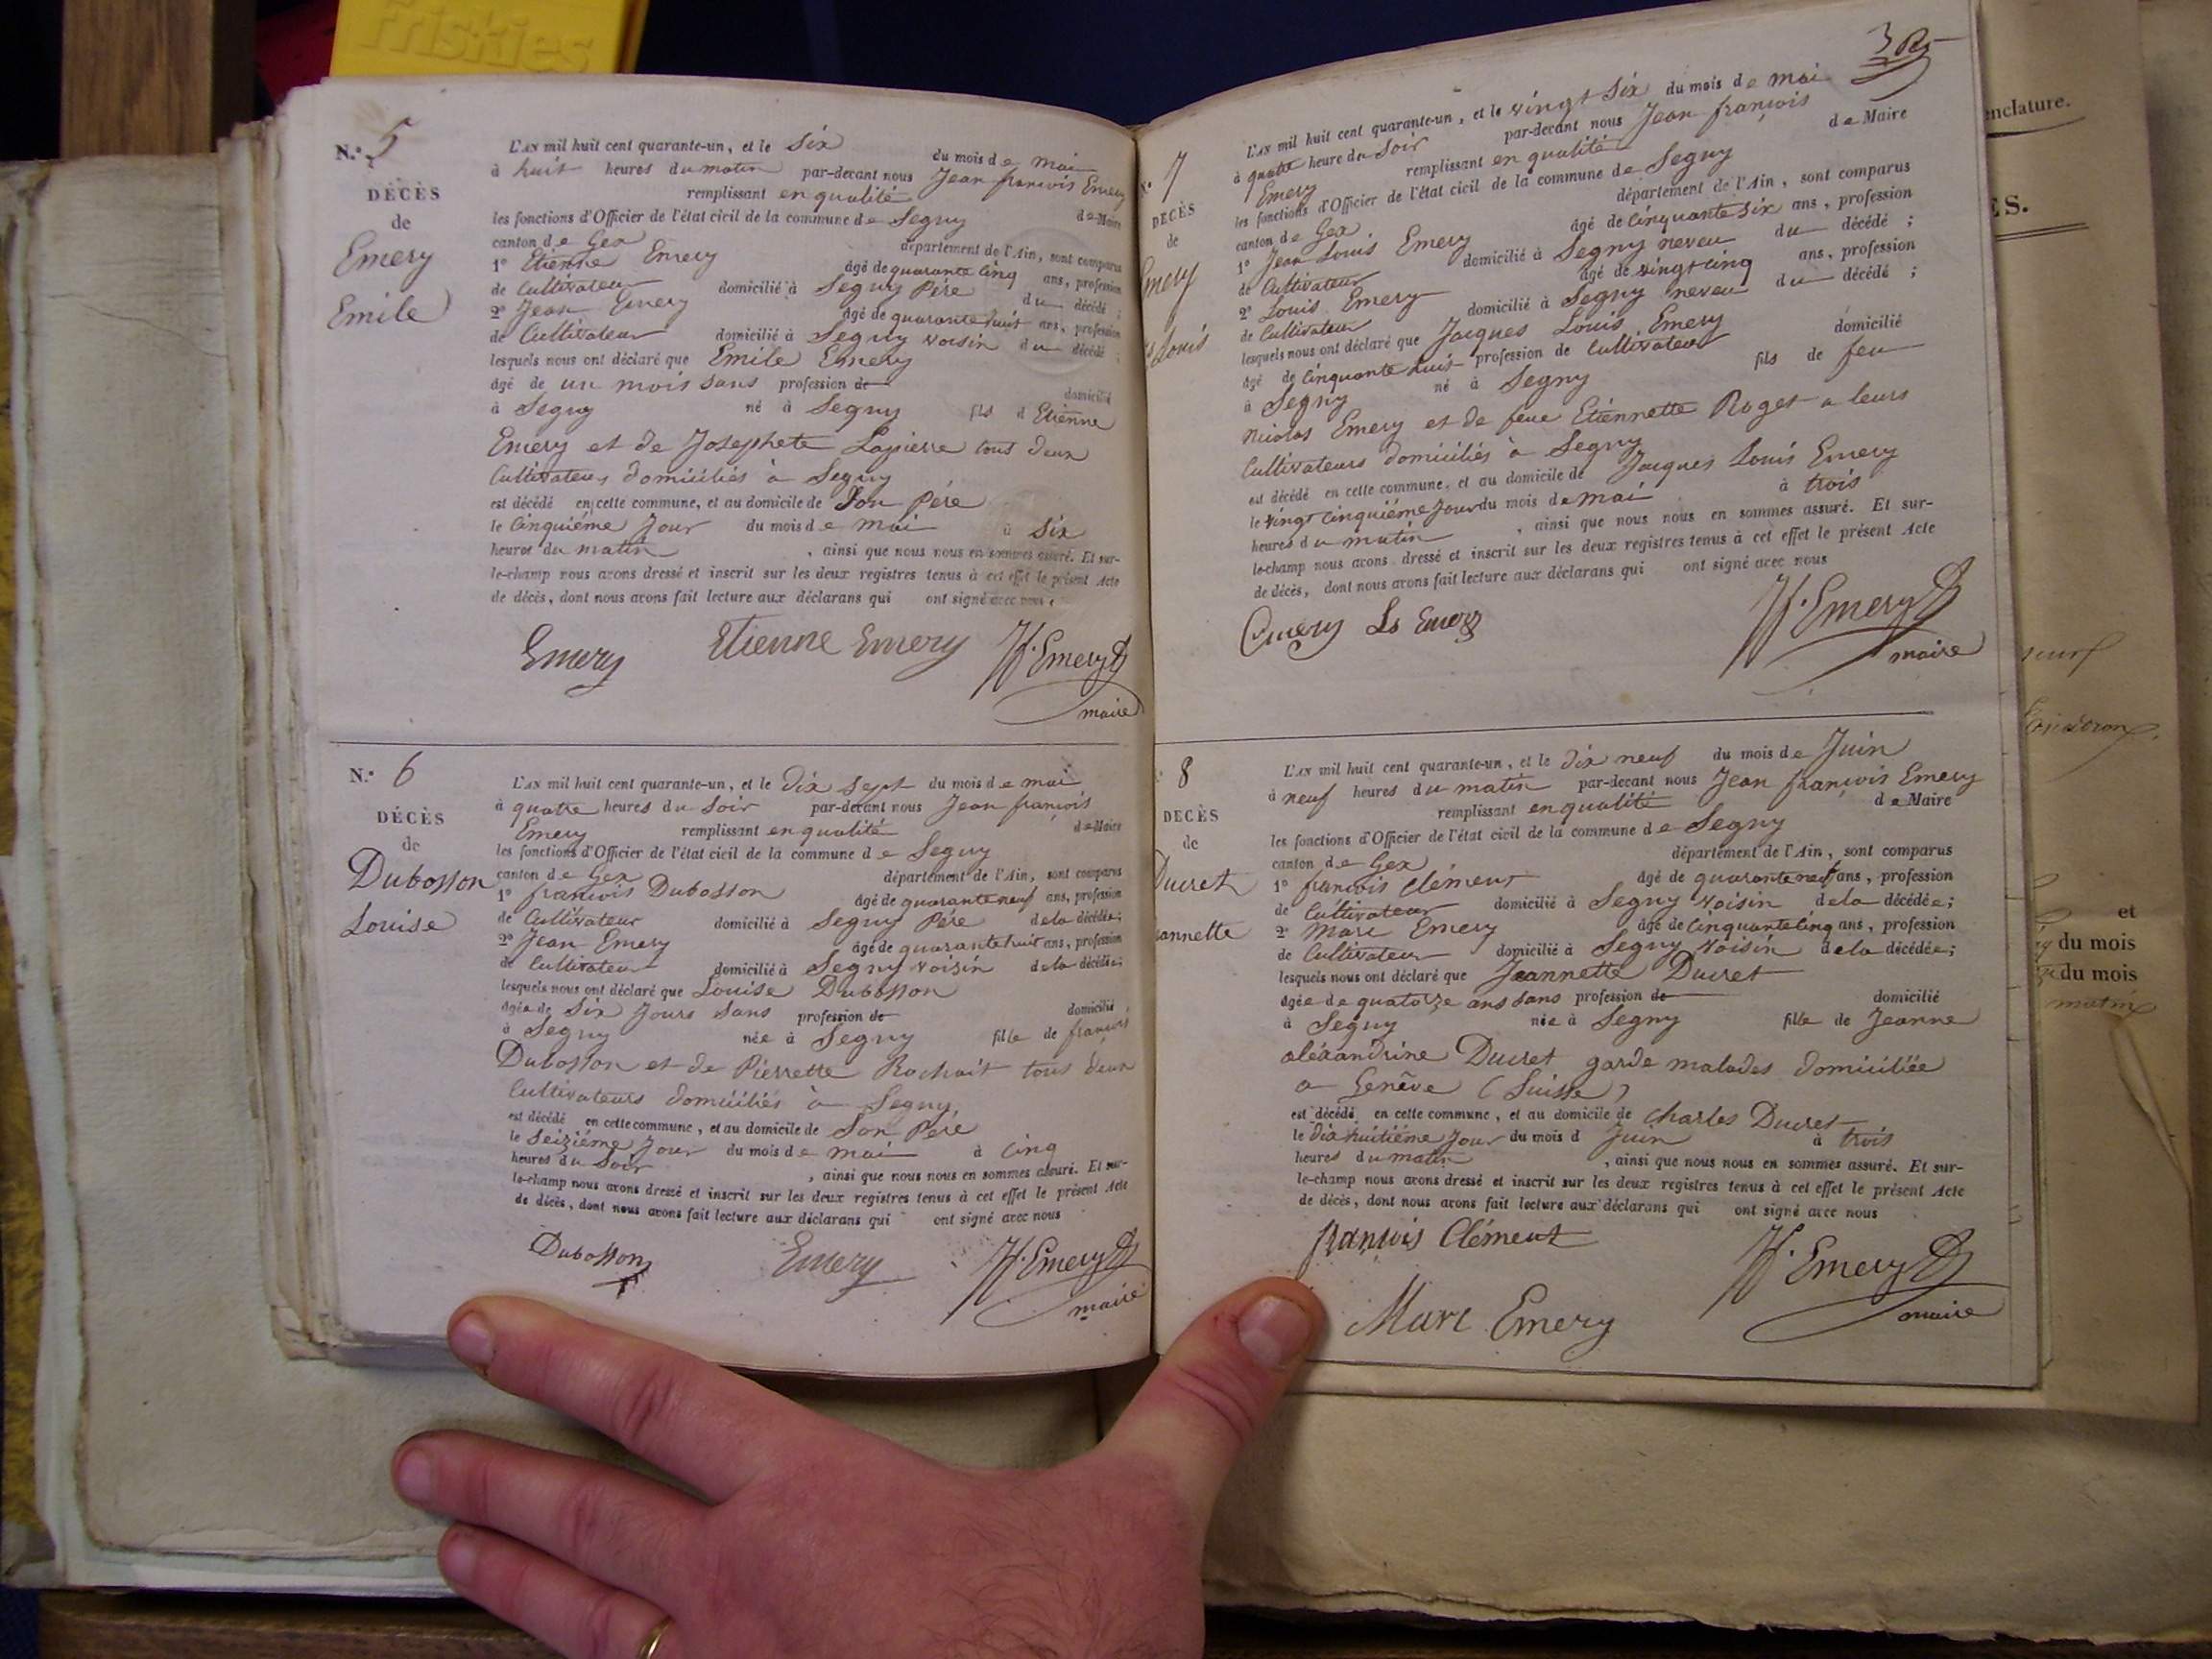 Friskies
N.º 5
DÉCÈS
de
Emery
Emile
L'AN mil huit cent quarante-un, et le Six du mois de mai
à huit heures du matin par-devant nous Jean françois Emery
remplissant en qualité de Maire
les fonctions d'Officier de l'état civil de la commune de Segny
canton de Gex département de l'Ain, sont comparus
1º Etienne Emery âgé de quarante cinq ans, profession
de Cultivateur domicilié à Segny Père du décédé ;
2º Jean Emery âgé de quarante huit ans, profession
de Cultivateur domicilié à Segny voisin du décédé ;
lesquels nous ont déclaré que Emile Emery
âgé de un mois sans profession de domicilié
à Segny né à Segny fils d Etienne
Emery et de Josephete Lapierre tous deux
Cultivateurs domiciliés à Segny
est décédé en cette commune, et au domicile de Son Père
le Cinquième Jour du mois de mai à Six
heures du matin , ainsi que nous nous en sommes assuré. Et sur-
le-champ nous avons dressé et inscrit sur les deux registres tenus à cet effet le présent Acte
de décès, dont nous avons fait lecture aux déclarans qui ont signé avec nous.
Emery Etienne Emery Jf. Emery
maire
N.º 6
DÉCÈS
de
Dubosson
Louise
L'AN mil huit cent quarante-un, et le Dix Sept du mois de mai
à quatre heures du Soir par-devant nous Jean françois
Emery remplissant en qualité de Maire
les fonctions d'Officier de l'état civil de la commune de Segny
canton de Gex département de l'Ain, sont comparus
1º françois Dubosson âgé de quarante neuf ans, profession
de Cultivateur domicilié à Segny Père de la décédée;
2º Jean Emery âgé de quarante huit ans, profession
de Cultivateur domicilié à Segny voisin de la décédée;
lesquels nous ont déclaré que Louise Dubosson
âgée de Six Jours Sans profession de domicilié
à Segny née à Segny fille de françois
Dubosson et de Pierrette Rochait tous deux
Cultivateurs domiciliés à Segny
est décédé en cette commune, et au domicile de Son Père
le Seizième Jour du mois de mai à Cinq
heures du Soir , ainsi que nous nous en sommes assuré. Et sur-
le-champ nous avons dressé et inscrit sur les deux registres tenus à cet effet le présent Acte
de décès, dont nous avons fait lecture aux déclarans qui ont signé avec nous
Dubosson Emery Jf. Emery
maire
7
DÉCÈS
de
Emery
Louis
L'AN mil huit cent quarante-un, et le vingt Six du mois de mai
à quatre heure du Soir par-devant nous Jean françois
Emery remplissant en qualité de Maire
les fonctions d'Officier de l'état civil de la commune de Segny
canton de Gex département de l'Ain, sont comparus
1º Jean Louis Emery âgé de Cinquante Six ans, profession
de Cultivateur domicilié à Segny neveu du décédé ;
2º Louis Emery âgé de vingt cinq ans, profession
de Cultivateur domicilié à Segny neveu du décédé ;
lesquels nous ont déclaré que Jacques Louis Emery
âgé de Cinquante huit profession de Cultivateur domicilié
à Segny né à Segny fils de feu
Nicolas Emery et de feue Etiennette Roget a leurs
Cultivateurs domiciliés à Segny
est décédé en cette commune, et au domicile de Jacques Louis Emery
le vingt Cinquième Jour du mois de mai à trois
heures du matin , ainsi que nous nous en sommes assuré. Et sur-
le-champ nous avons dressé et inscrit sur les deux registres tenus à cet effet le présent Acte
de décès, dont nous avons fait lecture aux déclarans qui ont signé avec nous
Emery Ls Emery Jf. Emery
maire
8
DÉCÈS
de
Ducret
Jeannette
L'AN mil huit cent quarante-un, et le Dix neuf du mois de Juin
à neuf heures du matin par-devant nous Jean françois Emery
remplissant en qualité de Maire
les fonctions d'Officier de l'état civil de la commune de Segny
canton de Gex département de l'Ain, sont comparus
1º françois Clément âgé de quarante neuf ans, profession
de Cultivateur domicilié à Segny voisin de la décédée;
2º Marc Emery âgé de Cinquante Cinq ans, profession
de Cultivateur domicilié à Segny voisin de la décédée;
lesquels nous ont déclaré que Jeannette Ducret
âgée de quatorze ans sans profession de domicilié
à Segny née à Segny fille de Jeanne
alexandrine Ducret garde malades domiciliée
a Genève (Suisse)
est décédé en cette commune, et au domicile de Charles Ducret
le dix huitième Jour du mois d Juin à trois
heures du matin , ainsi que nous nous en sommes assuré. Et sur-
le-champ nous avons dressé et inscrit sur les deux registres tenus à cet effet le présent Acte
de décès, dont nous avons fait lecture aux déclarans qui ont signé avec nous
françois Clément Jf. Emery
Marc Emery maire
nclature.
ES.
et
du mois
du mois
matin